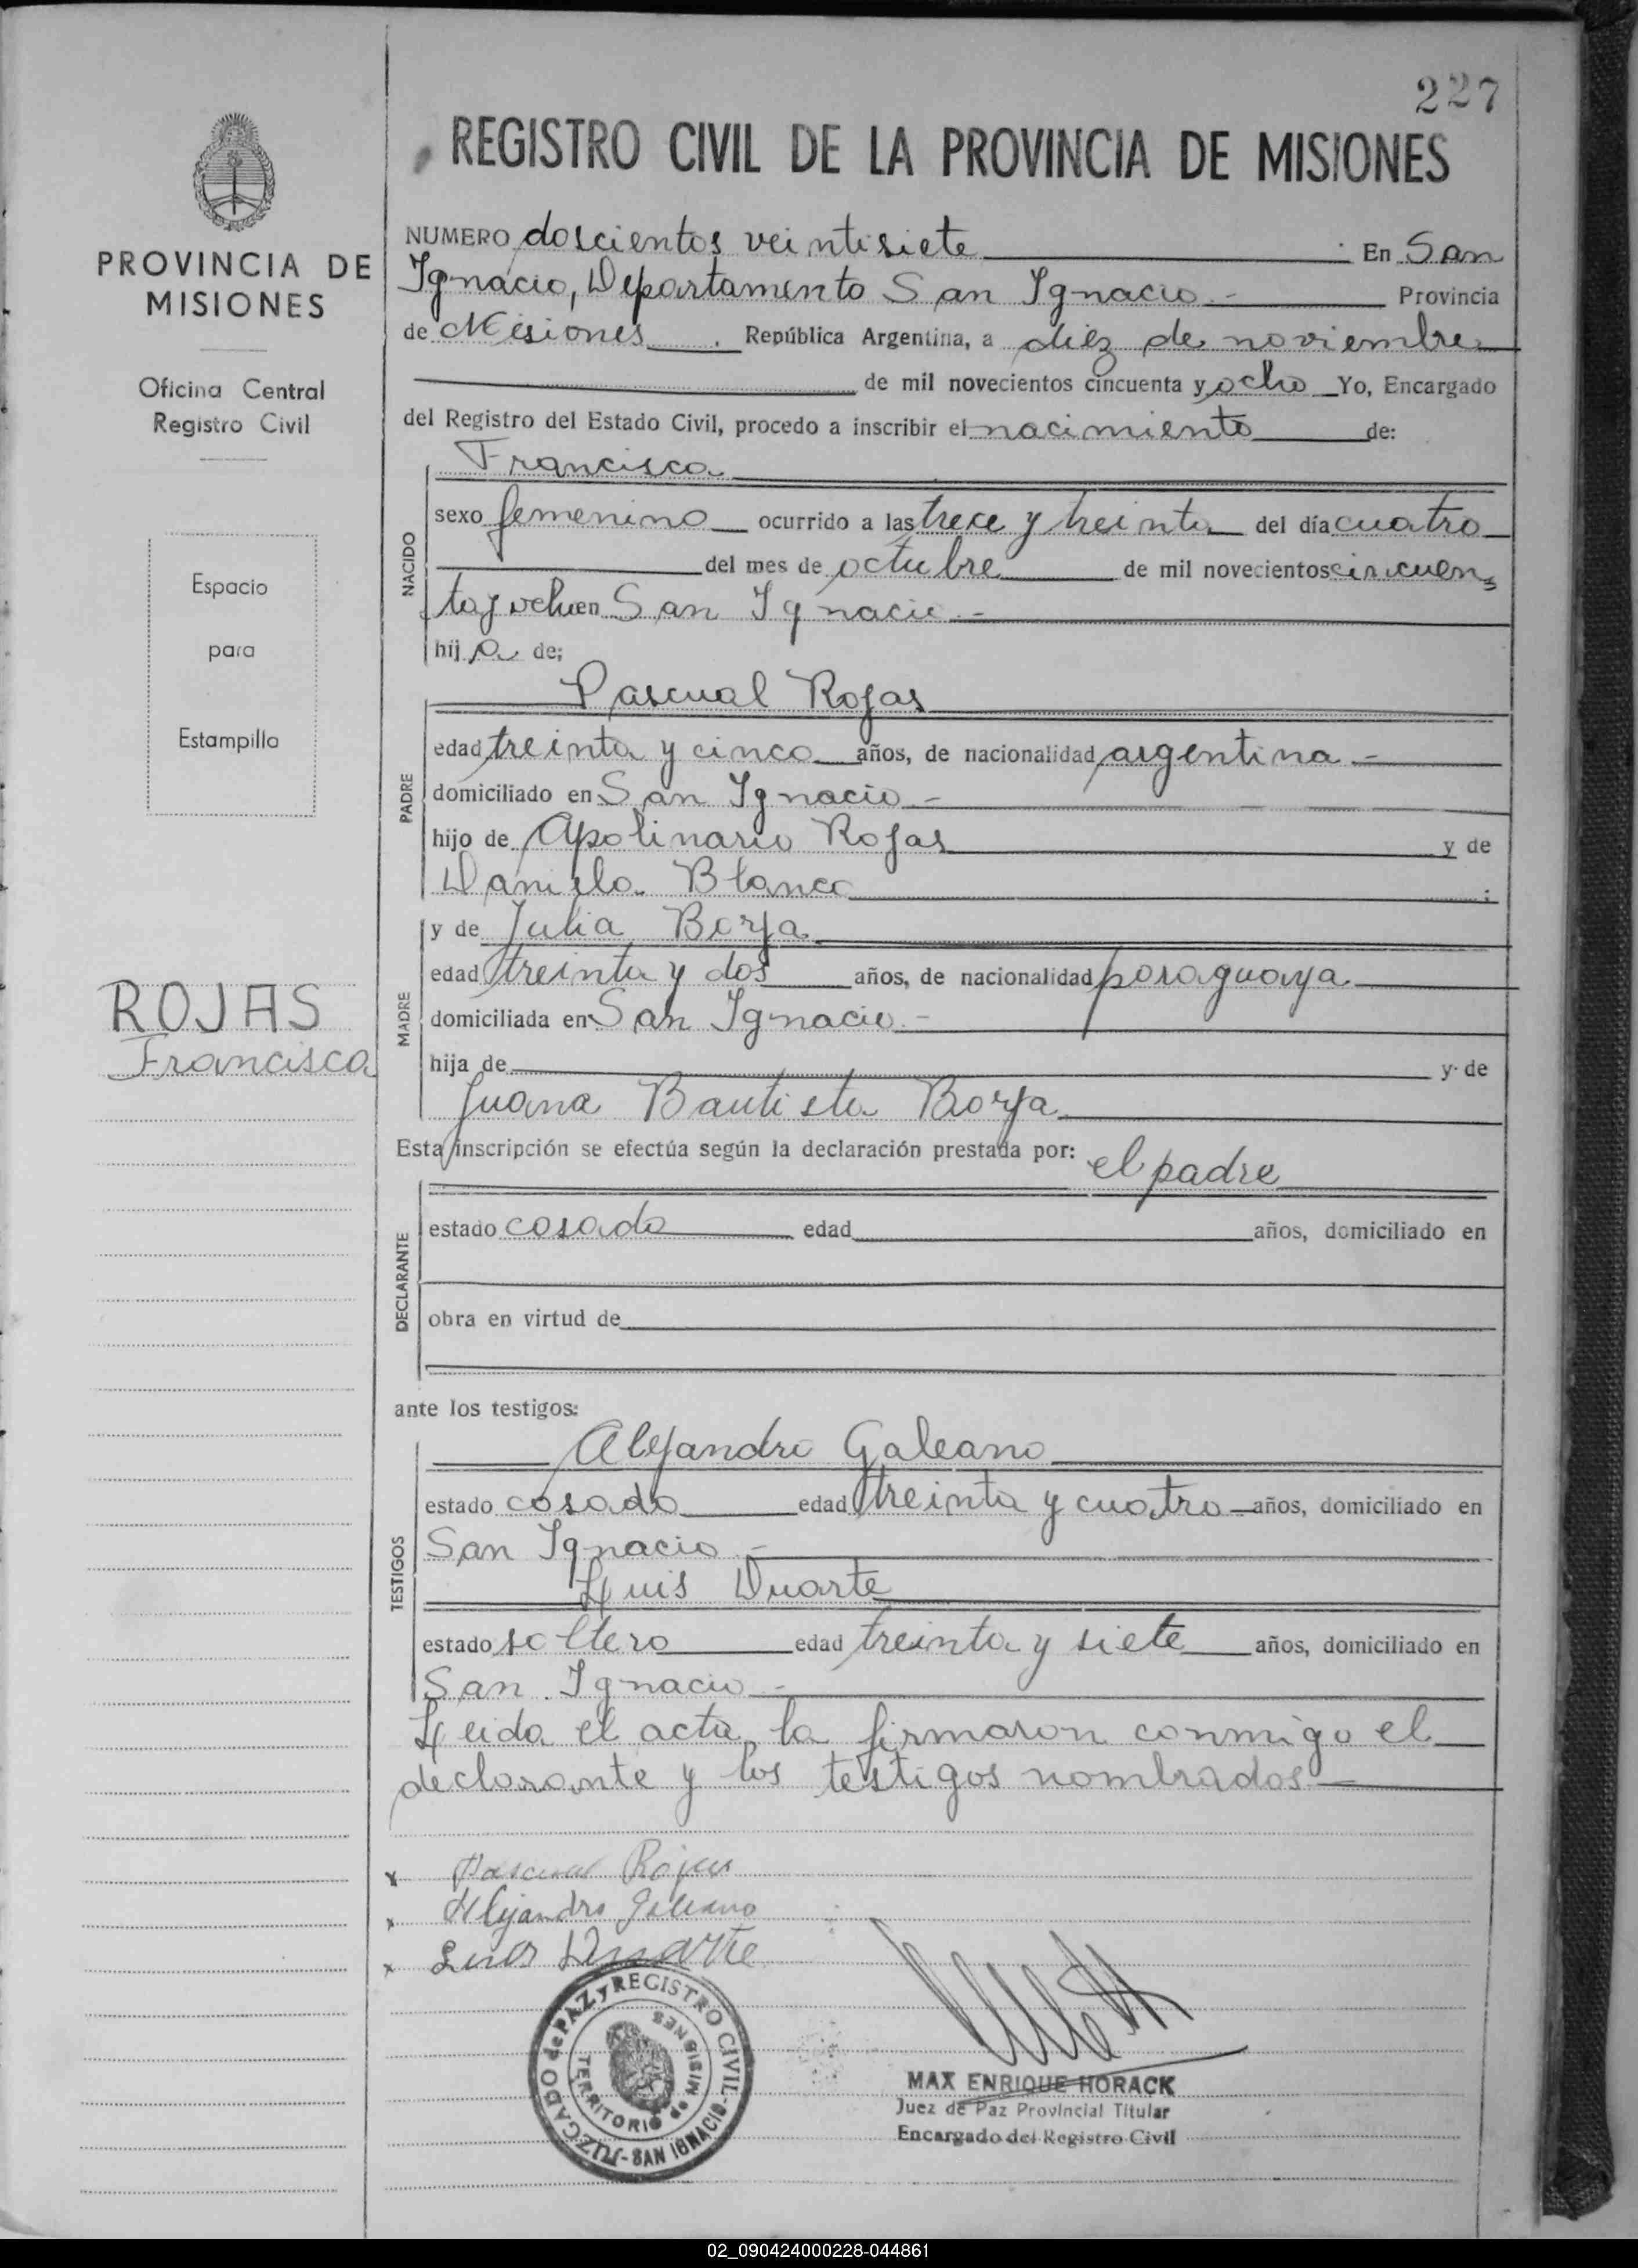 227
REGISTRO CIVIL DE LA PROVINCIA DE MISIONES
PROVINCIA DE
MISIONES
Oficina Central
Registro Civil
Espacio
para
Estampilla
ROJAS
Francisca
NUMERO doscientos veintisiete En San
Ignacio, Departamento San Ignacio.- Provincia
de Misiones. República Argentina, a diez de noviembre
de mil novecientos cincuenta y ocho Yo, Encargado
del Registro del Estado Civil, procedo a inscribir el nacimiento de:
NACIDO
Francisca
sexo femenino ocurrido a las trece y treinta del día cuatro
del mes de octubre de mil novecientos cincuen
ta y ocho en San Ignacio.-
hija de;
PADRE
Pascual Rojas
edad treinta y cinco años, de nacionalidad argentina.-
domiciliado en San Ignacio.-
hijo de Apolinario Rojas y de
Daniela Blanco ;
MADRE
y de Julia Borja
edad treinta y dos años, de nacionalidad paraguaya
domiciliada en San Ignacio.-
hija de y de
Juana Bautista Borja
Esta inscripción se efectúa según la declaración prestada por: el padre
DECLARANTE
estado casado edad años, domiciliado en
obra en virtud de
ante los testigos:
TESTIGOS
Alejandro Galeano
estado casado edad treinta y cuatro años, domiciliado en
San Ignacio.-
Luis Duarte
estado soltero edad treinta y siete años, domiciliado en
San Ignacio.-
Leida el acta, la firmaron conmigo el
declarante y los testigos nombrados.-
x Pascual Rojas
x Alejandro Galeano
x Luis Duarte
JUZGADO de PAZ y REGISTRO CIVIL - SAN IGNACIO -
TERRITORIO de MISIONES
MAX ENRIQUE HORACK
Juez de Paz Provincial Titular
Encargado del Registro Civil
02_090424000228-044861